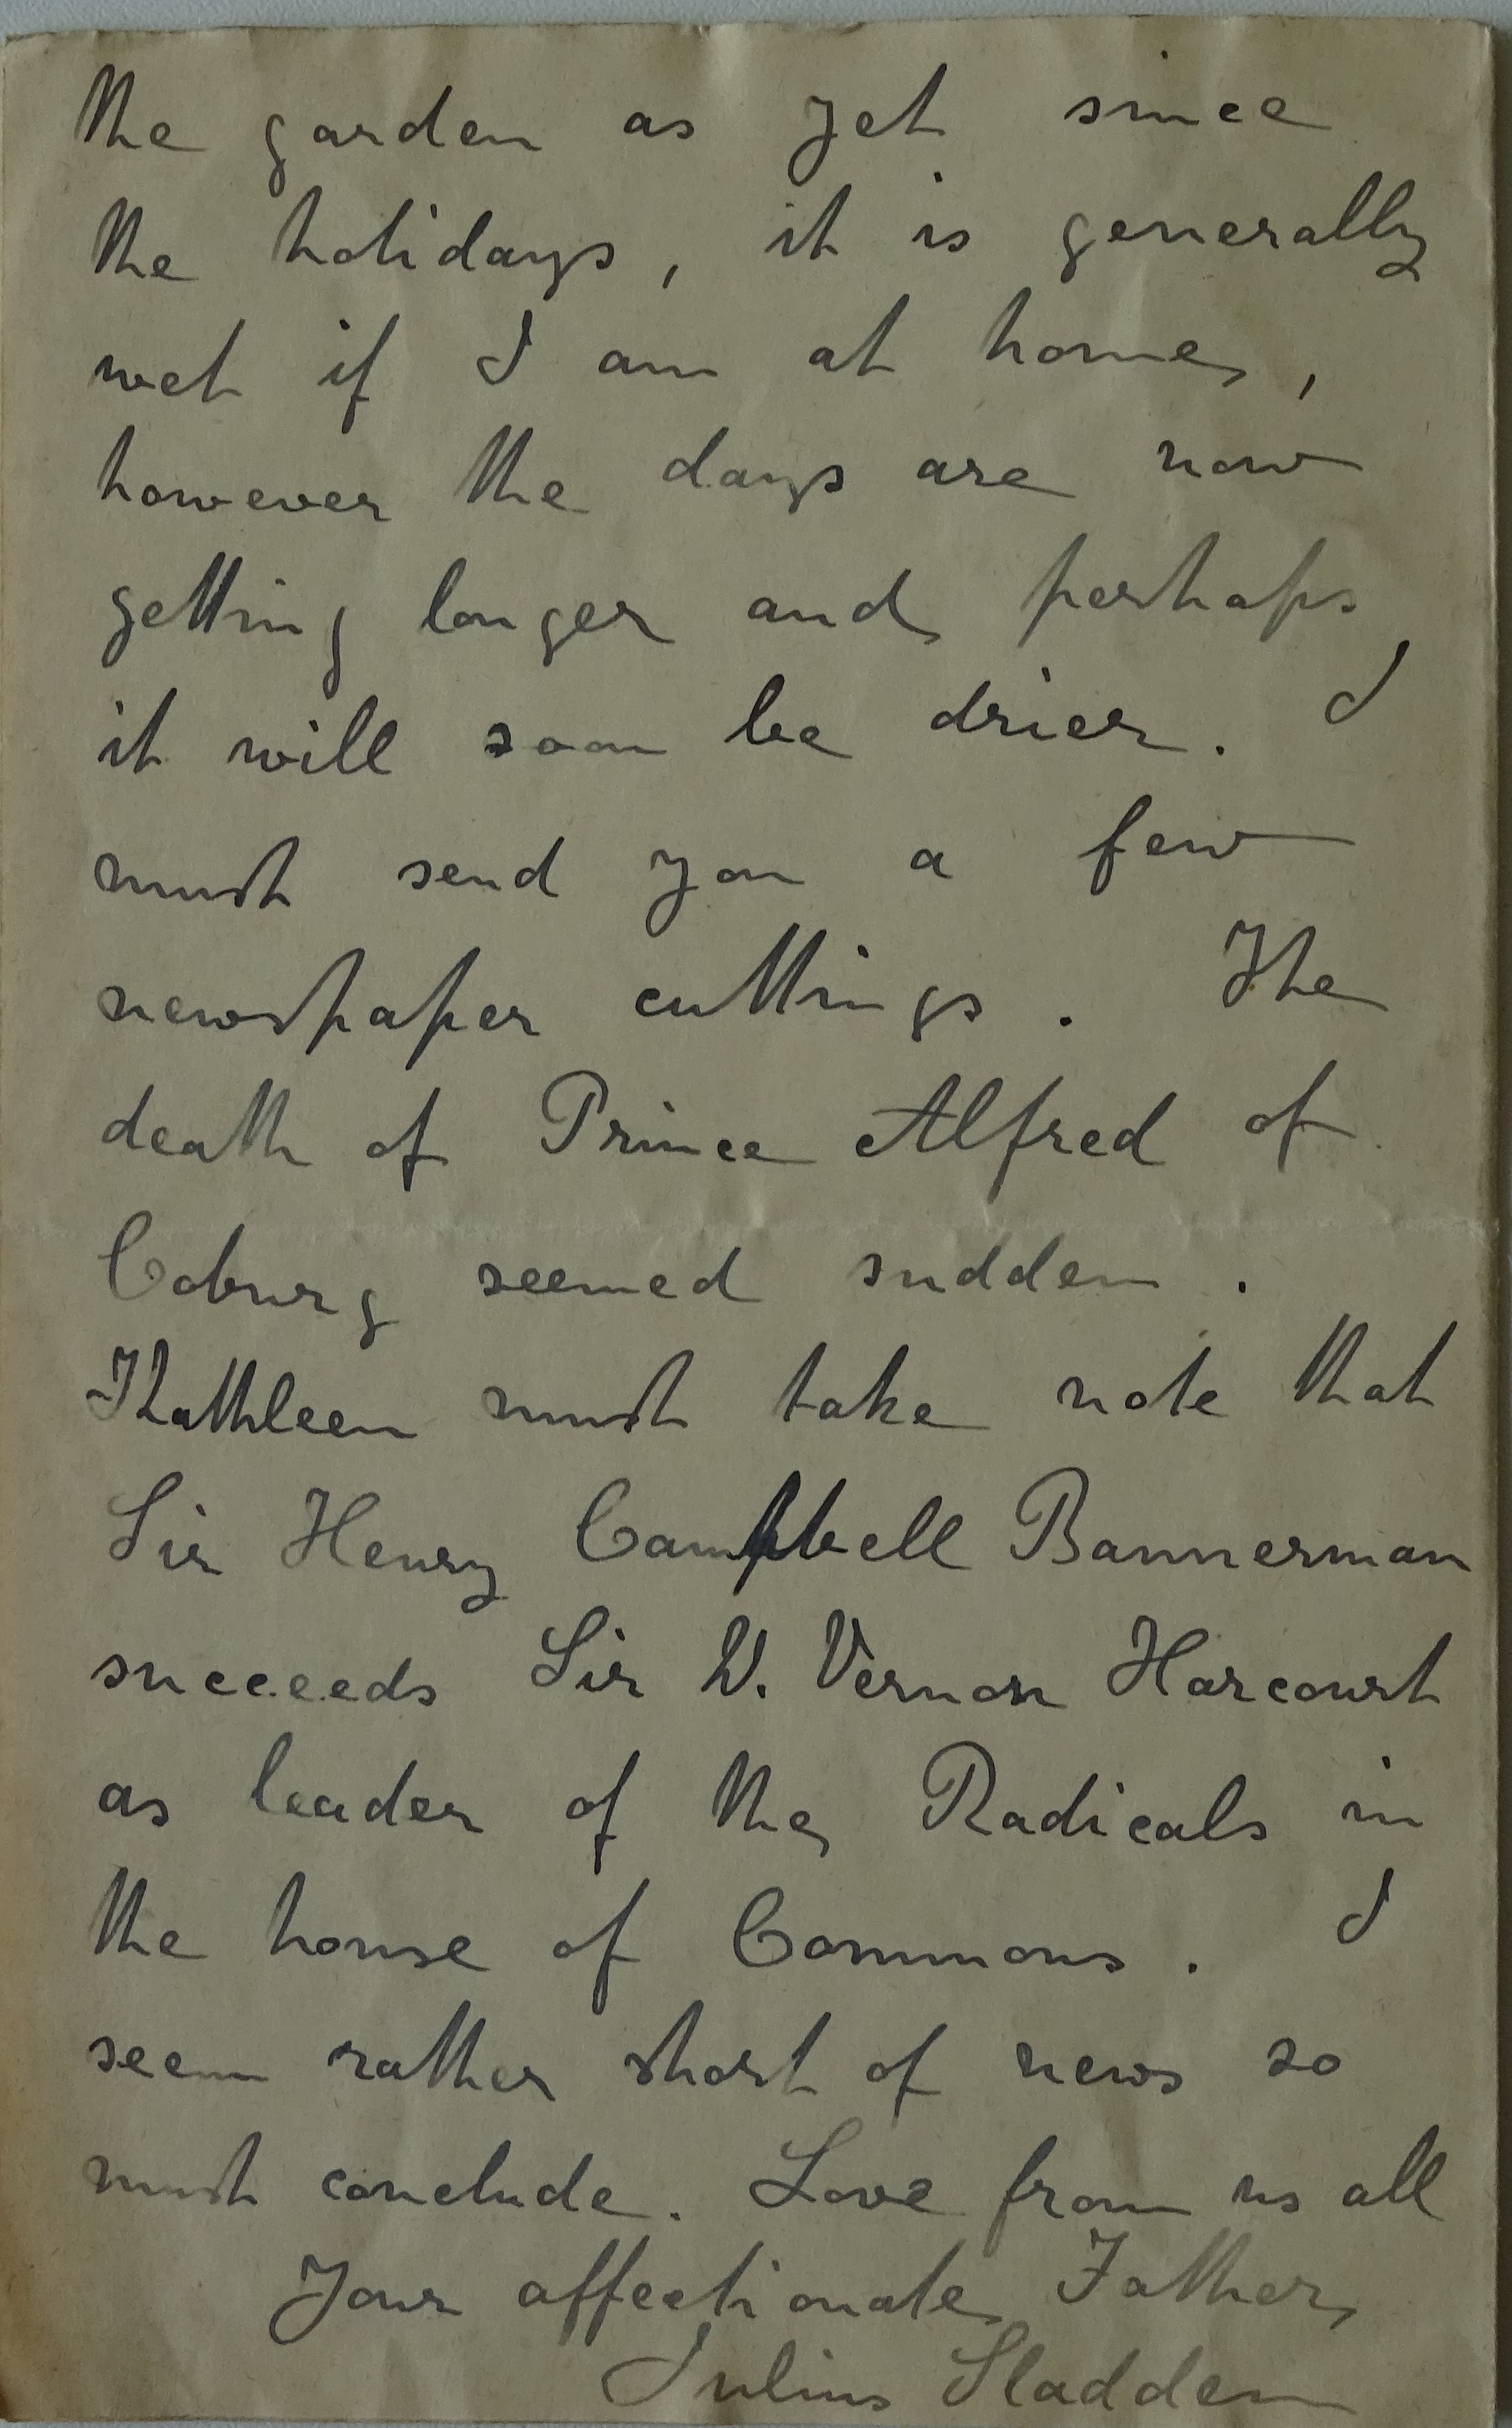 the garden as yet since
the holidays, it is generally
wet if I am at home,
however the days are now
getting longer and perhaps
it will soon be drier. I
must send you a few
newspaper cuttings. The
death of Prince Alfred of
Coburg seemed sudden.
Kathleen must take note that
Sir Henry Campbell Bannerman
succeeds Sir W. Vernon Harcourt
as leader of the Radicals in
the house of Commons. I
seem rather short of news so
must conclude. Love from us all
Your affectionate Father,
Julius Sladden